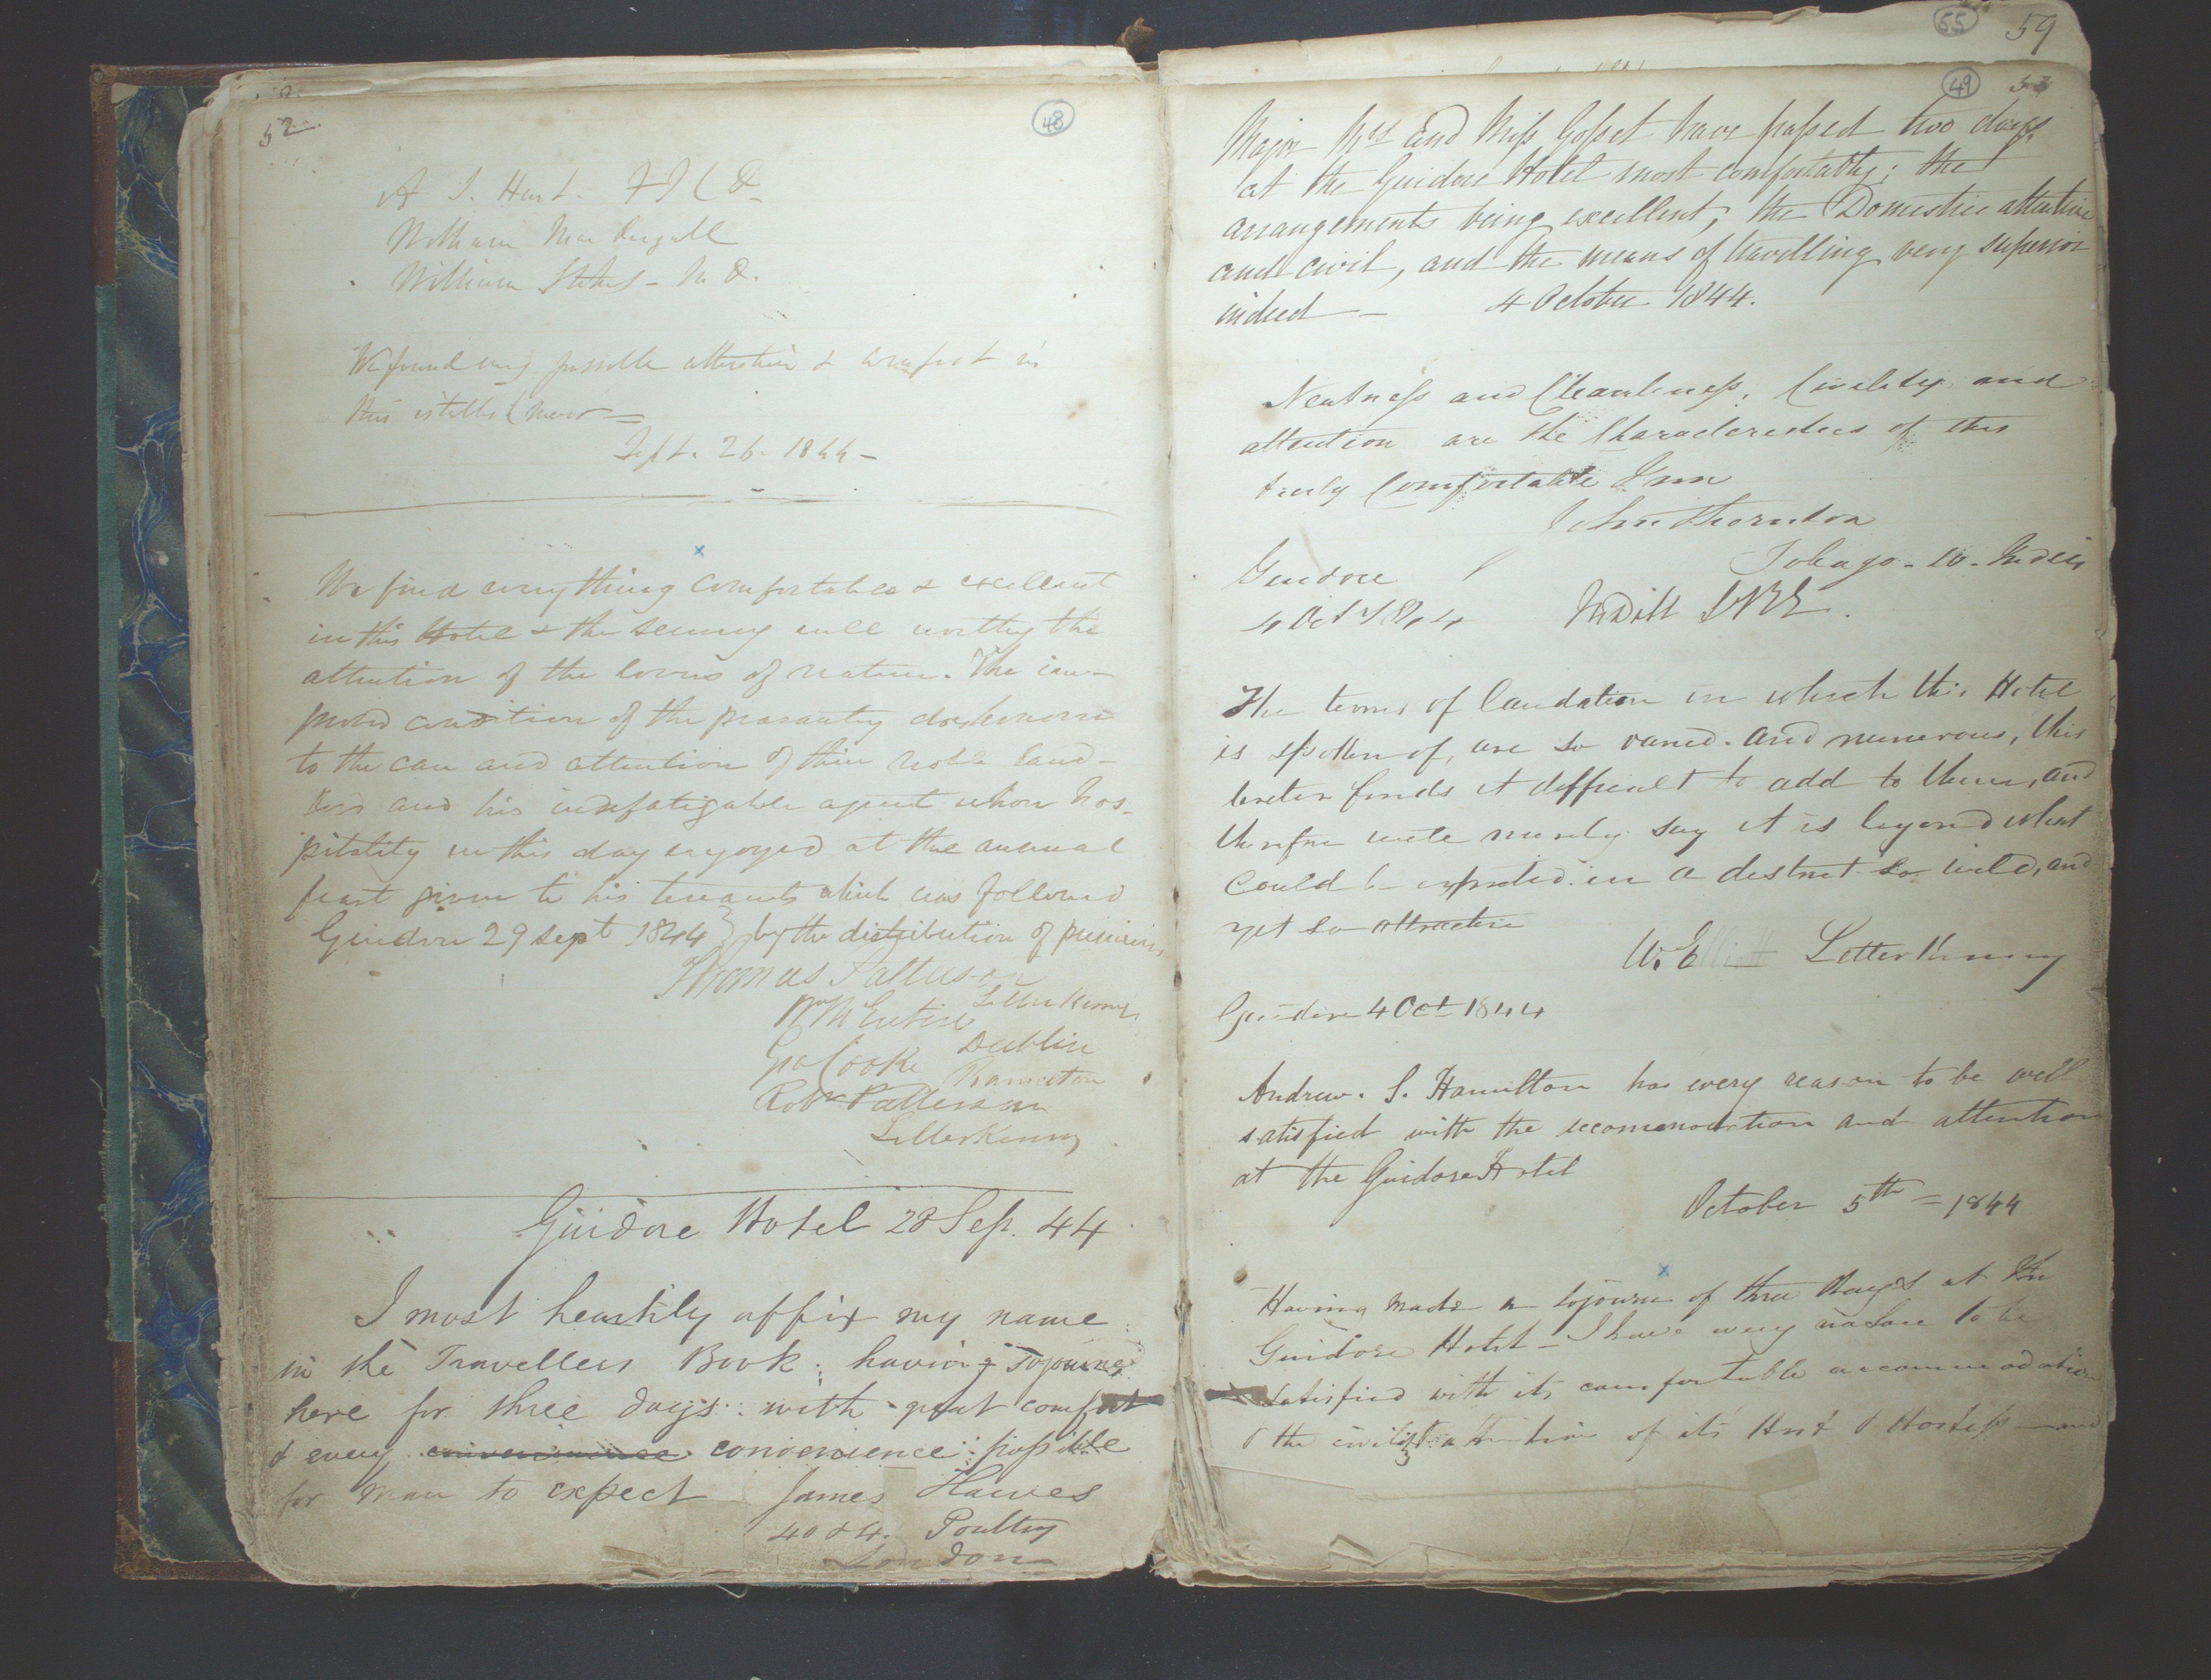 52.
48
A S. Hart. F T C D.
William MacDougall
William Stokes - M D.
We found every possible attention & comfort in
this establishment =
Sept. 26. 1844 -
x
We find every thing comfortable & excellent
in this Hotel & the scenery well worthy the
attention of the lovers of nature. The im-
proved condition of the peasantry does honour
to the care and attention of their noble land-
lord and his indefatigable agent whose hos-
pitality we this day enjoyed at the annual
feast given to his tenants which was followed
Guidore 29 Sept 1844 } by the distribution of premiums
Thomas Patterson
Letterkenny
Wm McEntire
Dublin
Geo Cooke Ramelton
Robt Patterson
Letterkenny
Guidore Hotel 28 Sep. 44
I most heartily affix my name
in the Travellers Book: having sojourned
here for three days: with great comfort
& every convenience convenience: possible
for man to expect James Hawes
40 & 4. Poultry
London
55 59
49 53
Major Mrs and Miss Gosset have passed two days
at the Guidore Hotel most comfortably; the
arrangements being excellent, the Domestics attentive
and civil, and the means of travelling very superior
indeed - 4 October 1844.
Neatness and Cleanliness, Civility and
attention are the Characteristics of this
truly Comfortable Inn
John Thornton
Tobago - W. Indies
Guidore
4 Oct 1844
The terms of laudation in which this Hotel
is spoken of, are so varied and numerous, this
writer finds it difficult to add to them, and
therefore will merely say it is beyond what
could be expected in a district so wild, and
yet so attractive
W. Elliott Letterkenny
Guidore 4 Oct 1844
Andrew. S. Hamilton has every reason to be well
satisfied with the accomomodation and attention
at the Guidore Hotel
October 5th = 1844
x
Having made a sojourn of three days at the
Guidore Hotel - I have every reason to be
satisfied with its comfortable accommodation
& the civility & attention of its Host & Hostess - and